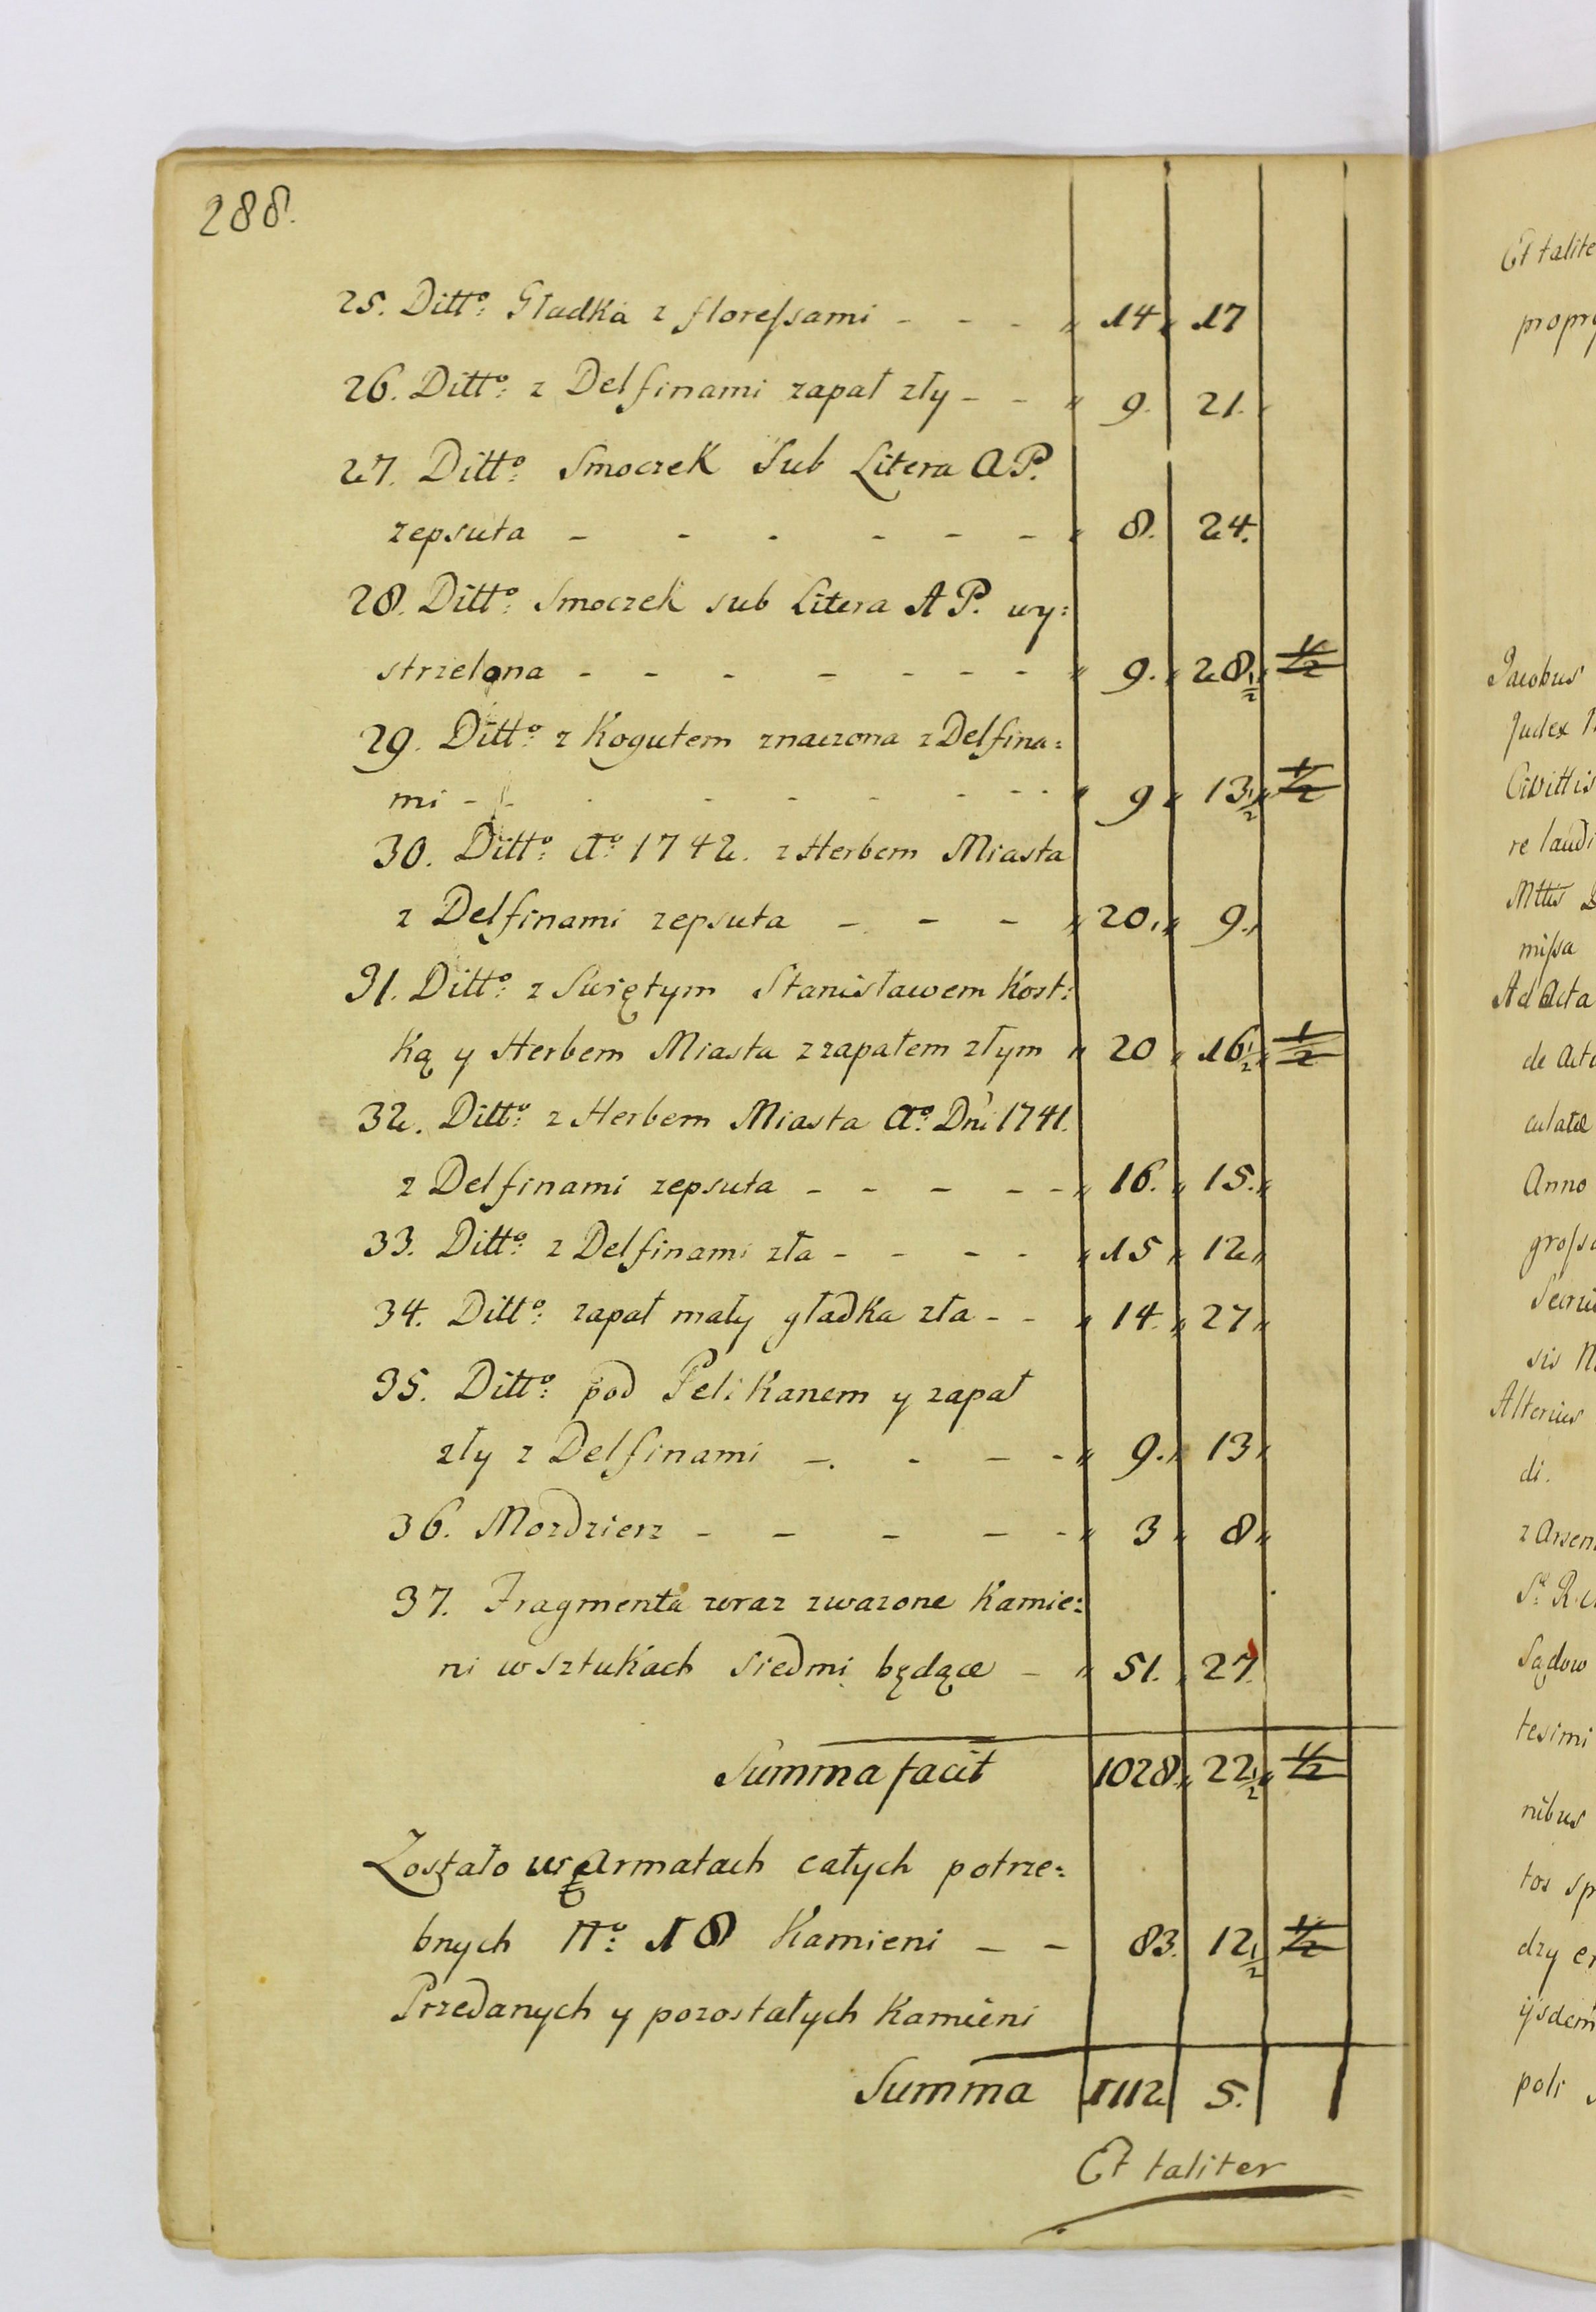 288.
25. Ditto: Gładka z floreſsami - - - „ 14 „ 17
26. Ditto: z Delfinami zapał zły - - „ 9. 21.
27. Ditto: Smoczek Sub Litera AP.
zepsuta - - - - - - „ 8. 24.
28. Ditto: Smoczek sub Litera AP. wy:
strzelona - - - - - - - „ 9. „ 28 1/2 „ 1/2
29. Ditto: z Kogutem znaczona z Delfina:
mi - - - - - - - - „ 9 „ 13 1/2 „ 1/2
30. Ditto: Ao: 1742. z Herbem Miasta
z Delfinami zepsuta - - - „ 20. „ 9. „
31. Ditto: z Swiętym Stanisławem Kost:
ką y Herbem Miasta z zapałem złym „ 20 „ 16 1/2 „ 1/2
32. Ditto: z Herbem Miasta Ao: Dni 1741.
z Delfinami zepsuta - - - - - „ 16. „ 15. „
33. Ditto: z Delfinami zła - - - - „ 15 „ 12 „
34. Ditto: zapał mały gładka zła - - „ 14. „ 27 „
35. Ditto: pod Pelikanem y zapał
zły z Delfinami - - - - „ 9. „ 13 „
36. Mozdzierz - - - - - „ 3 „ 8 „
37. Fragmenta wraz zwazone Kamie:
ni w sztukach siedmi będące - „ 51. „ 27.
Summa facit 1028. „ 22 1/2 „ 1/2
Zostało w Armatach całych potrze:
bnych No: 18 Kamieni - - 83. 12 1/2 1/2
Przedanych y pozostałych Kamieni
Summa 1112 5.
Et taliter
Et talite
propry
Jacobus
Judex
Civittis
re laudi
Mttis
miſsa
Ad Acta
de Acta
culatæ
Anno
groſso
sis
Alterius
di.
z Arsen
Sądow
tesimi
nibus
tos sp
dzy
ijsdem
poli